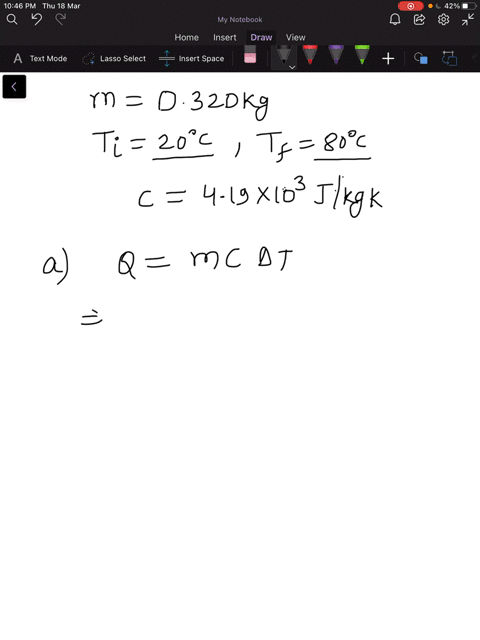 10:46 PM Thu 18 Mar
42%
My Notebook
Home Insert Draw View
A Text Mode Lasso Select Insert Space
m = 0.320kg
Ti = 20°C , Tf = 80°C
C = 4.19 × 10³ J/kg K
a) Q = mC ΔT
⇒